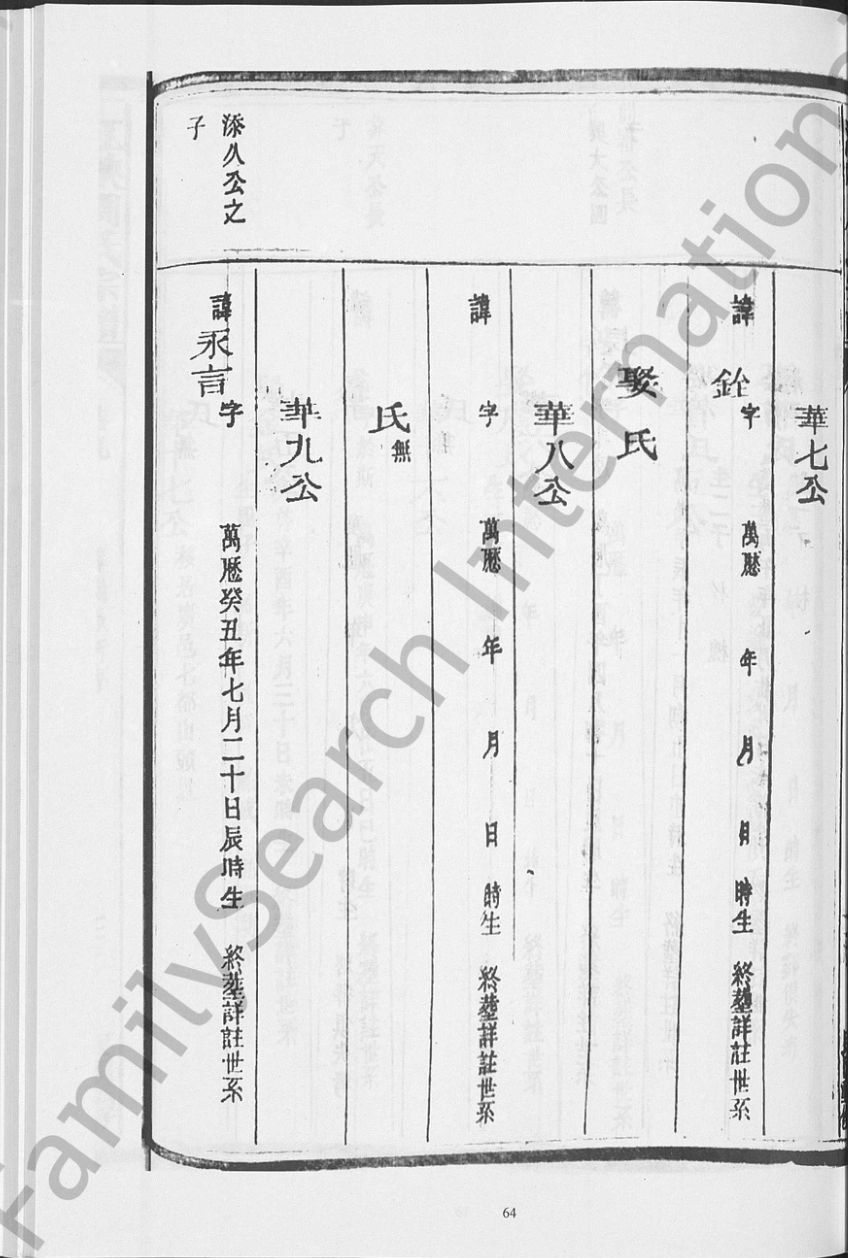 華七公
諱 銓 字 萬曆 年 月 日 時生 終塟詳註世系
娶 氏
華八公
諱 字 萬曆 年 月 日 時生 終塟詳註世系
氏 無
華九公
添久公之
子
諱 永言 字 萬曆癸丑年七月二十日辰時生 終塟詳註世系
64
FamilySearch International